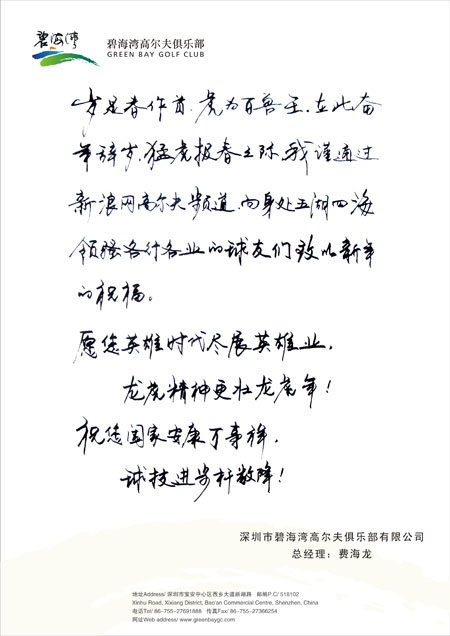 碧海湾
碧海湾高尔夫俱乐部
GREEN BAY GOLF CLUB
岁是春作首，虎为百兽王，在此奋
年辞岁，猛虎报春之际，我谨通过
新浪网高尔夫频道，向身处五湖四海
领骚各行各业的球友们致以新年
的祝福。
愿您英雄时代尽展英雄业，
龙虎精神更壮龙虎年！
祝您国家安康万事祥，
球技进步杆数降！
深圳市碧海湾高尔夫俱乐部有限公司
总经理：费海龙
地址Address/ 深圳市宝安中心区西乡大道新湖路 邮编P.C/ 518102
Xinhu Road, Xixiang District, Bao'an Commercial Centre, Shenzhen, China
电话Tel/ 86-755-27691888 传真Fax/ 86-755-27366254
网址Web address/ www.greenbaygc.com